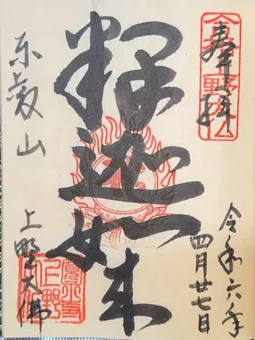 奉拝
令和六年
四月廿七日
釈迦如来
東叡山
上野大佛